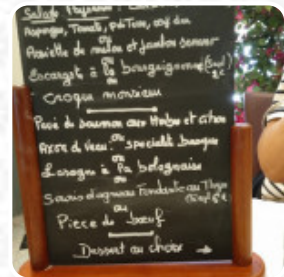 Salade Paysanne :
Asperges, Tomate, œuf dur
Assiette de melon et jambon serrano
ou
Escargots à la bourguignonne
Croque monsieur
Pavé de saumon aux Herbes et citron
ou
Axoa de veau : spécialité basque
ou
Lasagne à la bolognaise
Souris d'agneau Fondante au Thym
ou
Pièce de bœuf
Dessert au choix →